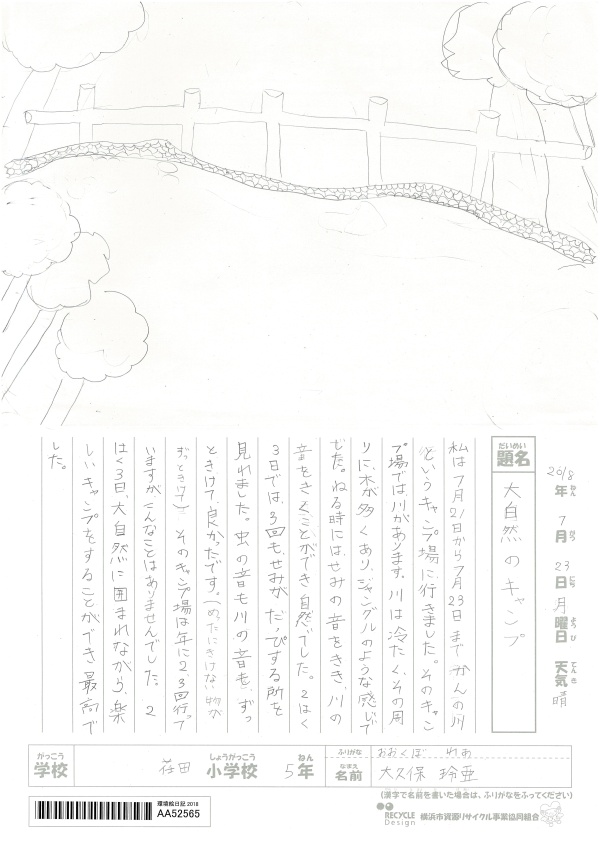 2018年 7月 23日 月曜日 天気 晴
ねん がつ にち ようび てんき
だいめい
題名
大自然のキャンプ
私は7月21日から7月23日まで、かんの川
というキャンプ場に行きました。そのキャン
プ場では、川があります。川は冷たく、その周
りに、木が多くあり、ジャングルのような感じで
した。ねる時には、せみの音をきき、川の
音をきくことができ自然でした。2はく
3日では、3回も、せみが、だっぴする所を
見れました。虫の音も川の音も、ずっ
ときけて、良かったです。(めったにきけない物が
ずっときけて)そのキャンプ場は年に2、3回行って
いますが、こんなことはありませんでした。2
はく3日、大自然に囲まれながら、楽
しいキャンプをすることができ、最高で
した。
がっこう
学校
荏田
しょうがっこう
小学校
5年
ねん
ふりがな おおくぼ れあ
なまえ
名前 大久保 玲亜
(漢字で名前を書いた場合は、ふりがなをふってください)
環境絵日記2018
AA52565
RECYCLE Design
横浜市資源リサイクル事業協同組合